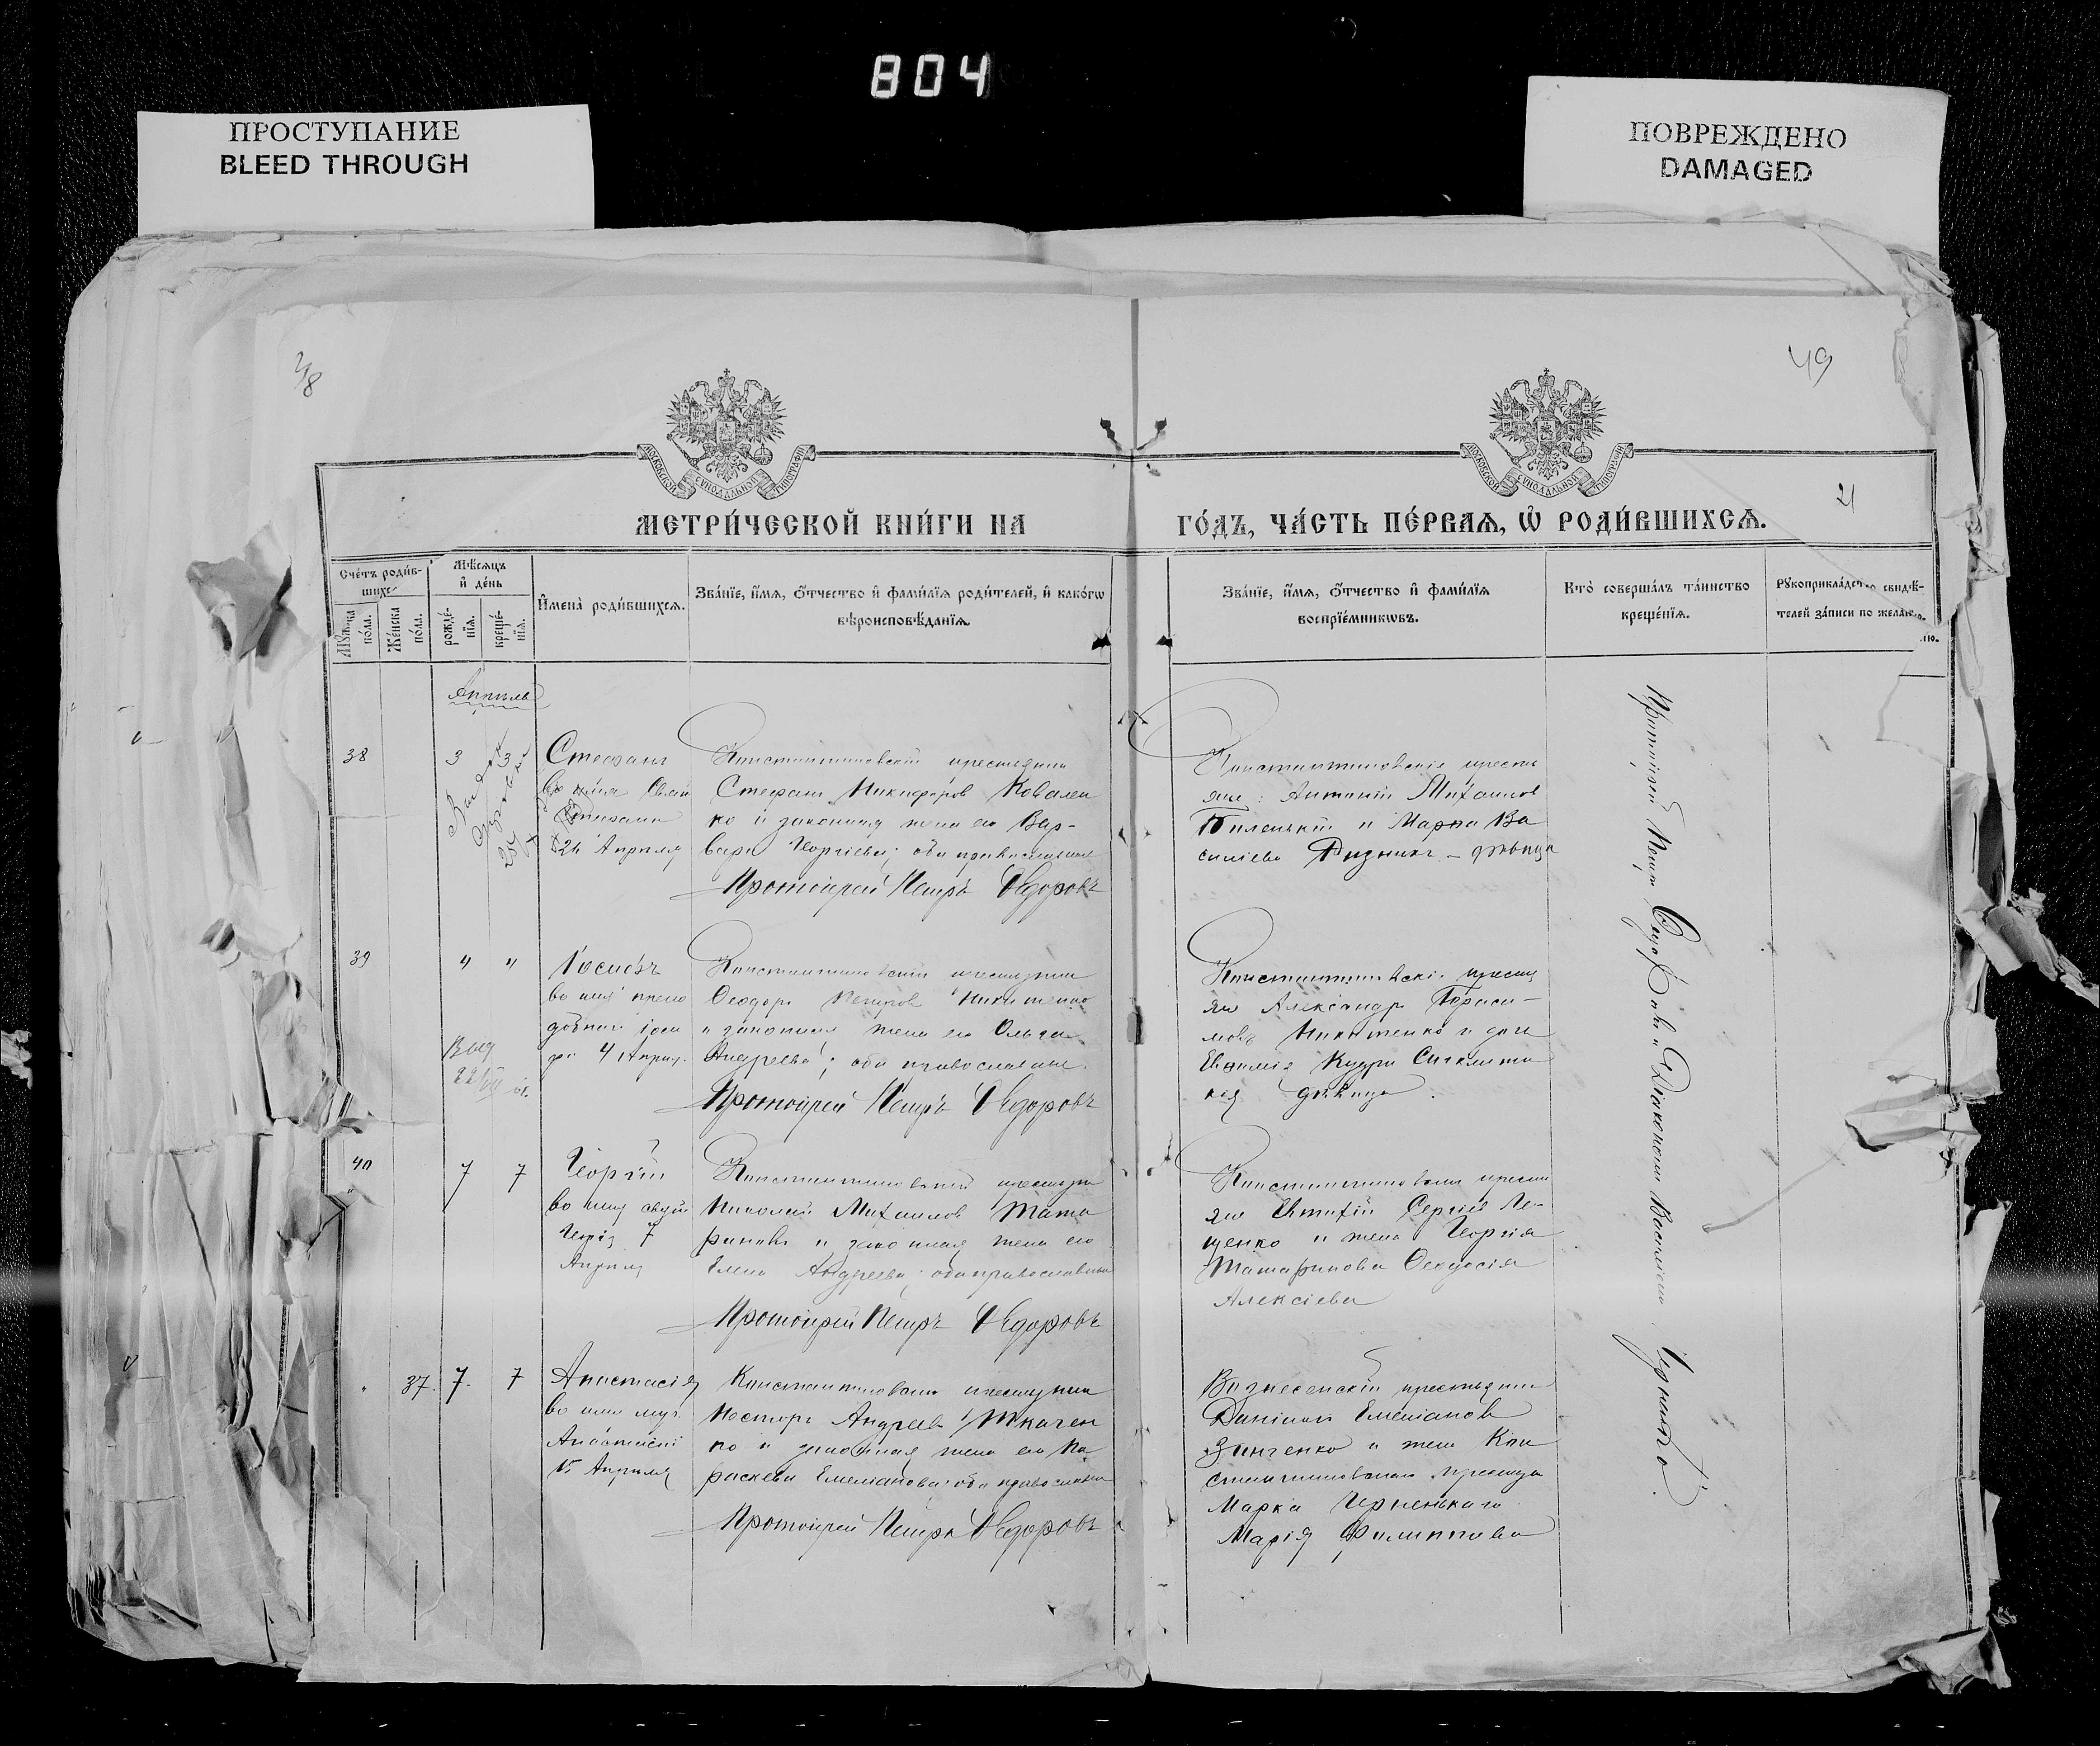 804
ПРОСТУПАНИЕ
BLEED THROUGH
ПОВРЕЖДЕНО
DAMAGED
48
49
21
МОСКОВСКОЙ СѴНОДАЛЬНОЙ ТИПОГРАФІИ
МОСКОВСКОЙ СѴНОДАЛЬНОЙ ТИПОГРАФІИ
МЕТРИ́ЧЕСКОЙ КНИ́ГИ НА
ГО́ДЪ, ЧА́СТЬ ПЕ́РВАѦ, Ѡ҆ РОДИ́ВШИХСѦ.
Сче́тъ роди́в-
шихс
Му́жска по́ла.
Же́нска по́ла.
Мѣ́сяцъ
и҆ де́нь
рожде́-
нїѧ.
креще́-
нїѧ.
И҆мена̀ роди́вшихсѧ.
Зва́нїе, и҆́мѧ, ѻ҆́тчество и҆ фами́лїѧ роди́телей, и҆ како́гѡ
вѣроисповѣ́данїѧ.
Зва́нїе, и҆́мѧ, ѻ҆́тчество и҆ фами́лїѧ
воспрїе́мникѡвъ.
Кто̀ соверша́лъ та́инство
креще́нїѧ.
Рꙋкоприкла́дство свидѣ́-
телей за́писи по жела́
нїю.
Апрель
38
3
3
Стефанъ
Стефана
26 Апреля
Константиновскій крестьянинъ
Стефанъ Никифоровъ Ковален
ко и законная жена его Вар-
вара Георгіева; оба православные
Протоіерей Петръ Ѳедоровъ
Константиновскіе кресть
яне: Антоній Михаиловъ
и Марѳа Ва
силіева Ризникъ - дѣвица
39
4
"
Іосифъ
во имя препо
добнаго Іоси
фа 4 Апреля
Выд
Константиновскій крестьянинъ
Ѳеодоръ Петровъ Никитенко
и законная жена его Ольга
Андреева; оба православные.
Протоіерей Петръ Ѳедоровъ
Константиновскіе кресть
яне Александръ Гераси-
мовъ Никитенко и дочь
Евѳимія Кудри
дѣвица.
40
7
7
Георгій
во имя святаго
Георгія 7
Апреля
Константиновскій крестьянинъ
Николай Михаиловъ Тата
риновъ и законная жена его
Елена Андреева; оба православные
Протоіерей Петръ Ѳедоровъ
Константиновскіе кресть
яне Евтихій Сергіевъ Ле-
щенко и жена Георгія
Татаринова Ѳеодосія
Алексіева
37.
7.
7
Анастасія
во имя муч.
Анастасіи
15 Апреля
Константиновскій крестьянинъ
Несторъ Андреевъ Ткачен
ко и законная жена его Па
раскева Емеліанова; оба православные
Протоіерей Петръ Ѳедоровъ
Вознесенскій крестьянинъ
Даніилъ Емеліановъ
Зинченко и жена Кон
стантиновскаго крестьянина
Марка Черненькаго
Марія Филиппова
Протоіерей Петръ Ѳедоровъ съ Діакономъ Василіемъ